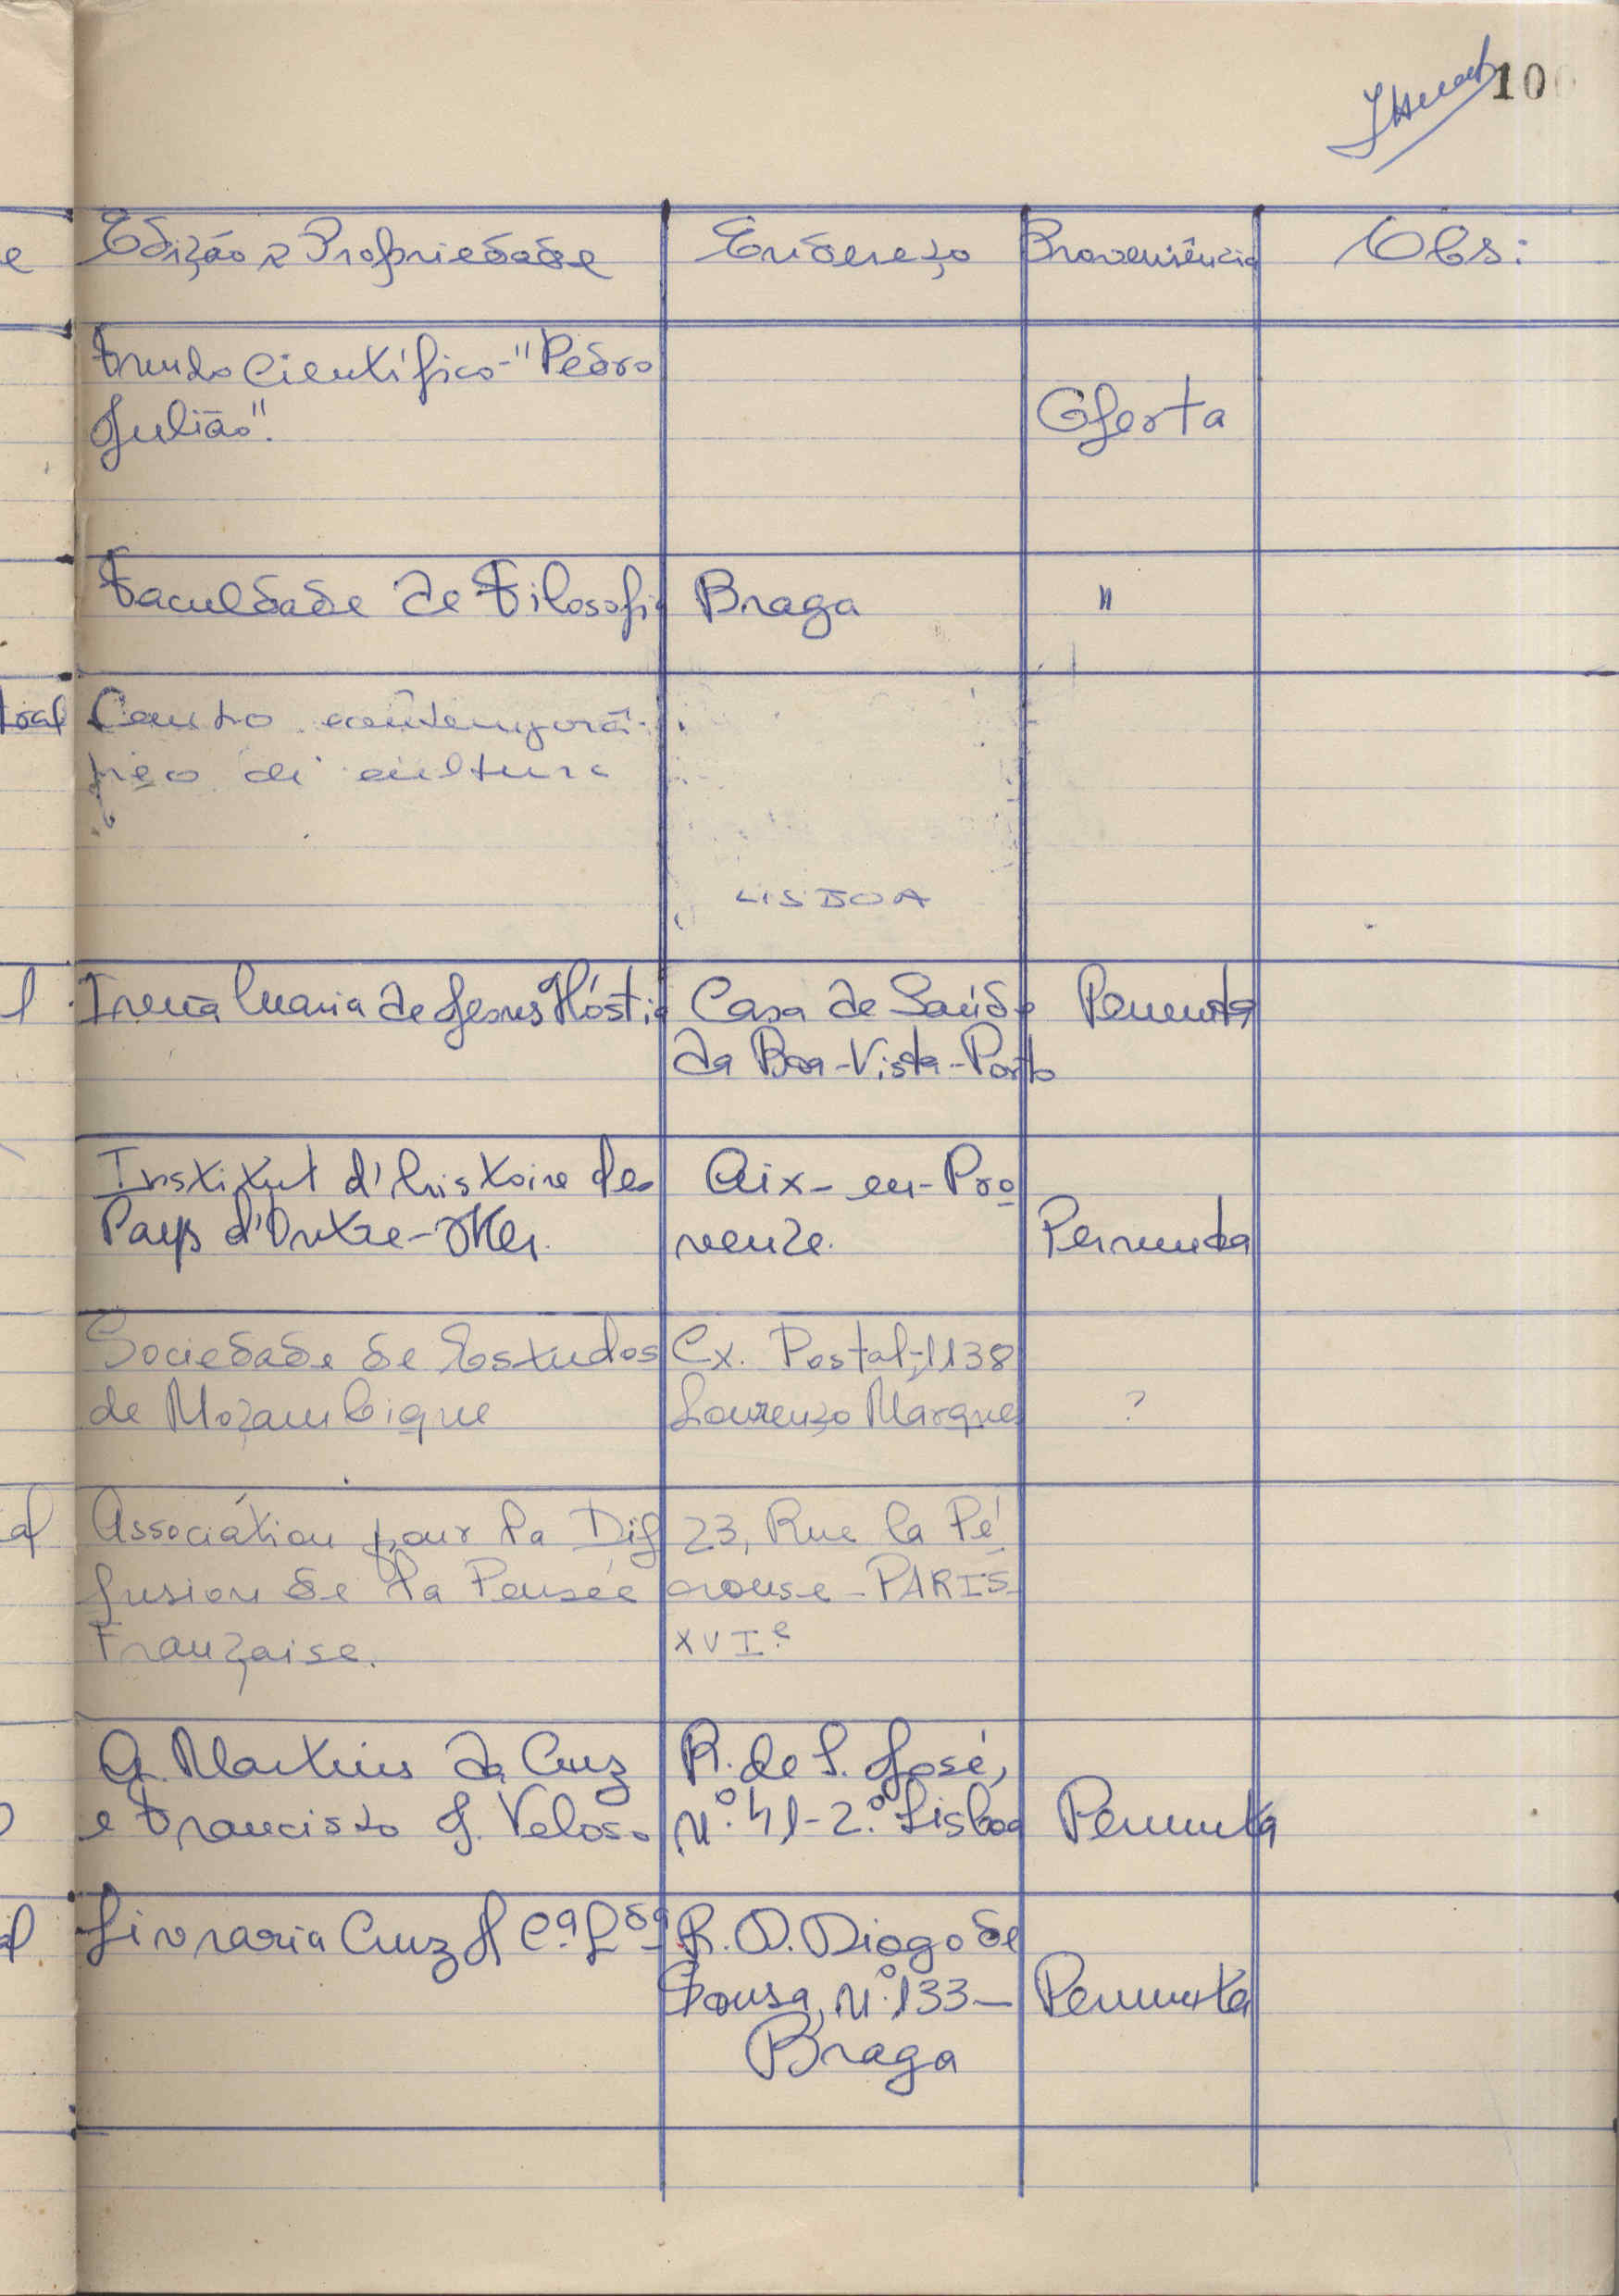 100
e Edição e Propriedade Endereço Proveniência Obs:
Fundo Científico - "Pedro
Julião". Oferta
Faculdade de Filosofia Braga "
Centro contemporâ-
neo de cultura
LISBOA
l Irmã Maria de Jesus Hóstia Casa de Saúde Permuta
da Boa-Vista-Porto
Institut d'histoire des Aix-en-Pro
Pays d'Outre-Mer. vence. Permuta
Sociedade de Estudos Cx. Postal-1138
de Moçambique Lourenço Marques ?
al Association pour la Dif 23, Rue la Pé
fusion de la Pensée rouse - PARIS
Française. XVIe
G. Martins da Cruz R. de S. José,
o e Francisco J. Veloso Nº. 41-2.º Lisboa Permuta
Livraria Cruz & Cª. Ldª R. D. Diogo de
Sousa, Nº. 133- Permuta
Braga